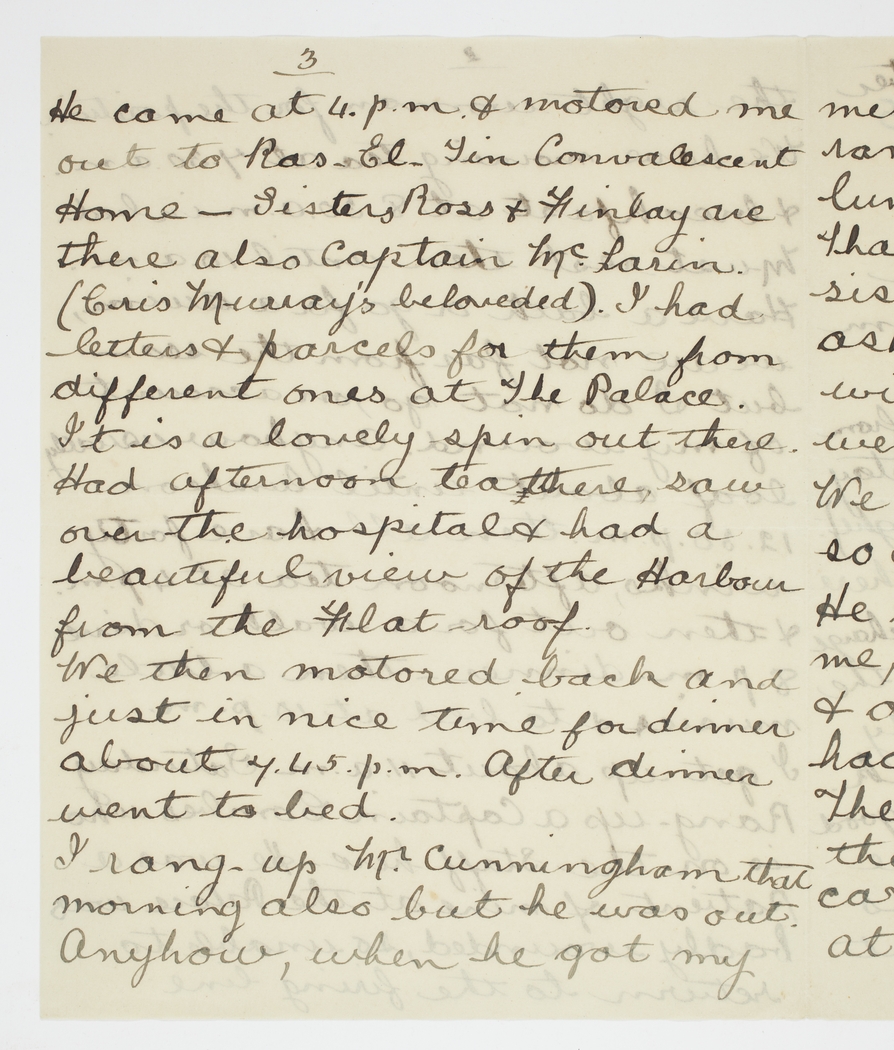 3
He came at 4. p. m. & motored me
out to Ras-El-Tin Convalescent
Home — Sisters Ross & Finlay are
there also Captain Mc. Larin.
(Cris Murray's beloveded). I had
letters & parcels for them from
different ones at The Palace.
It is a lovely spin out there.
Had afternoon tea there, saw
over the hospital & had a
beautiful view of the Harbour
from the Flat roof.
We then motored back and
just in nice time for dinner
about 7.45. p. m. After dinner
went to bed.
I rang-up Mr. Cunningham that
morning also but he was out.
Anyhow, when he got my
me
We
so
He
me,
&
had
The
at